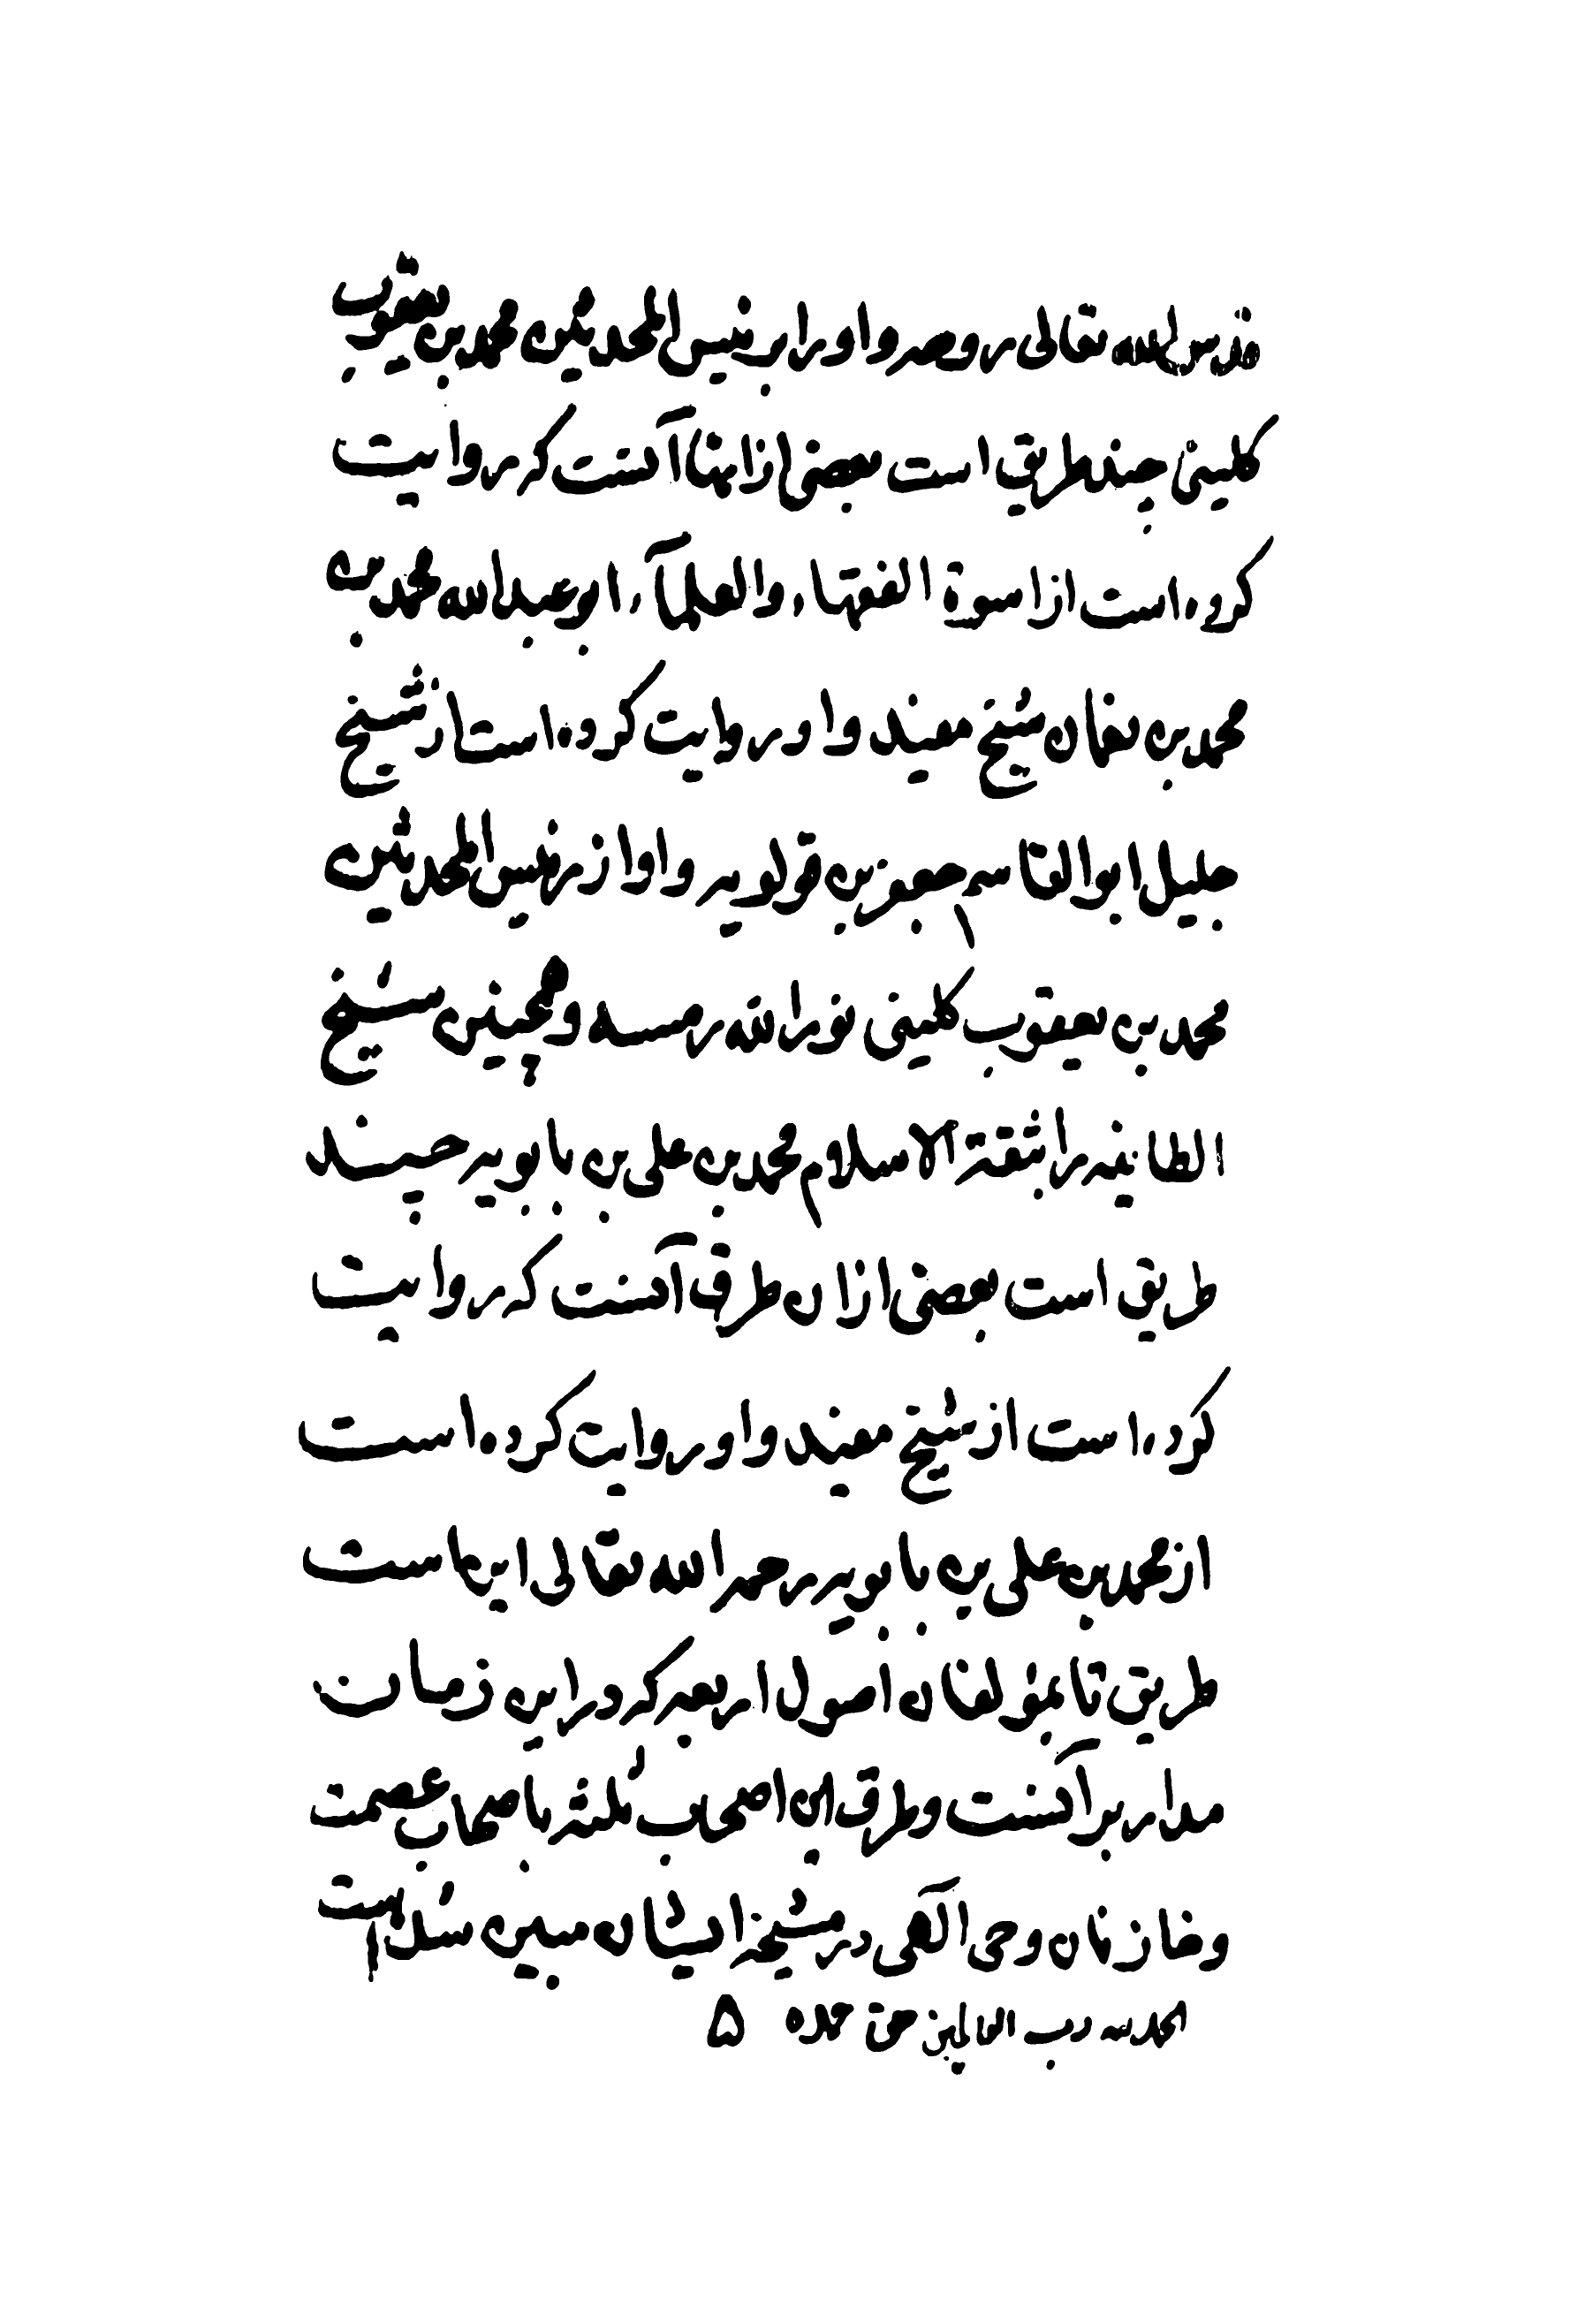 قدس الله تعالی روحه و او را برئیس المحدثین محمد بن یعقوب
کلینی چند طریق است بعضی از انها آنست که روایت
کرده است از اسوة الفقهاء و العلمآء ابو عبد الله محمد بن
محمد بن نعمان شیخ مفید و او روایت کرده است از شیخ
جلیل ابو القاسم جعفر بن قولویه و او از رئیس المحدثین
محمد بن یعقوب کلینی نور الله رمسه و همچنین شیخ
الطایفه را بثقة الاسلام محمد بن علی بن بابویه چند
طریق است بعضی ازان طرق آنست که روایت
کرده است از شیخ مفید و او روایت کرده است
از محمد بن علی بن بابویه رحمه الله تعالی اینهاست
طریق تا بمؤلفان اصول اربعه که در این زمان
مدار بر آنست و طرق این اصحاب ثلثه باصحاب عصمت
و خازنان وحی الهی در مشیخهٔ ایشان مبین شده است
الحمد لله رب العالمین حق حمده ۵